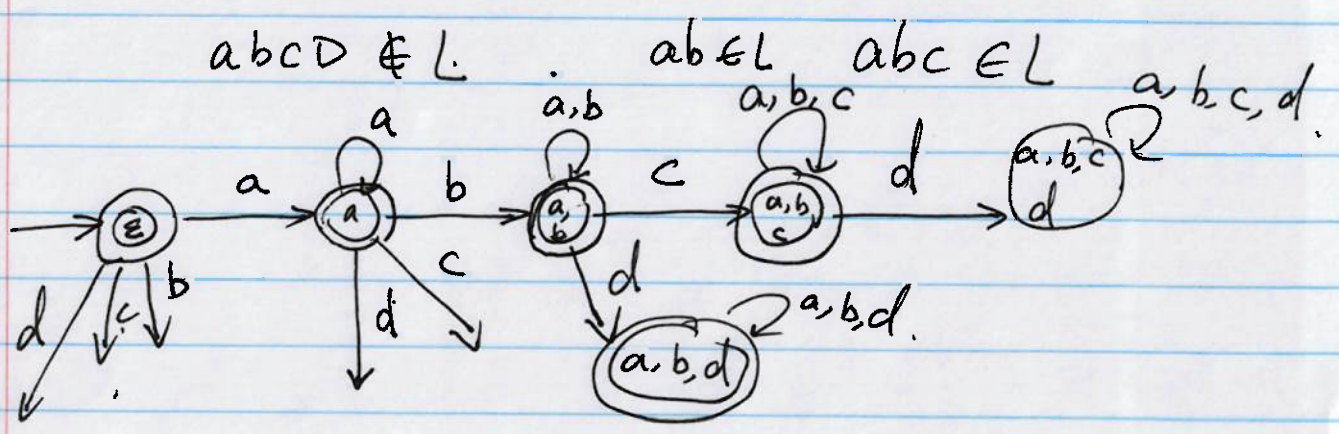 abcD ∉ L. ab ∈ L abc ∈ L
a a,b a,b,c a,b,c,d.
a b c d
ε a a,b a,b,c a,b,c d
d c b d c d a,b,d.
a,b,d